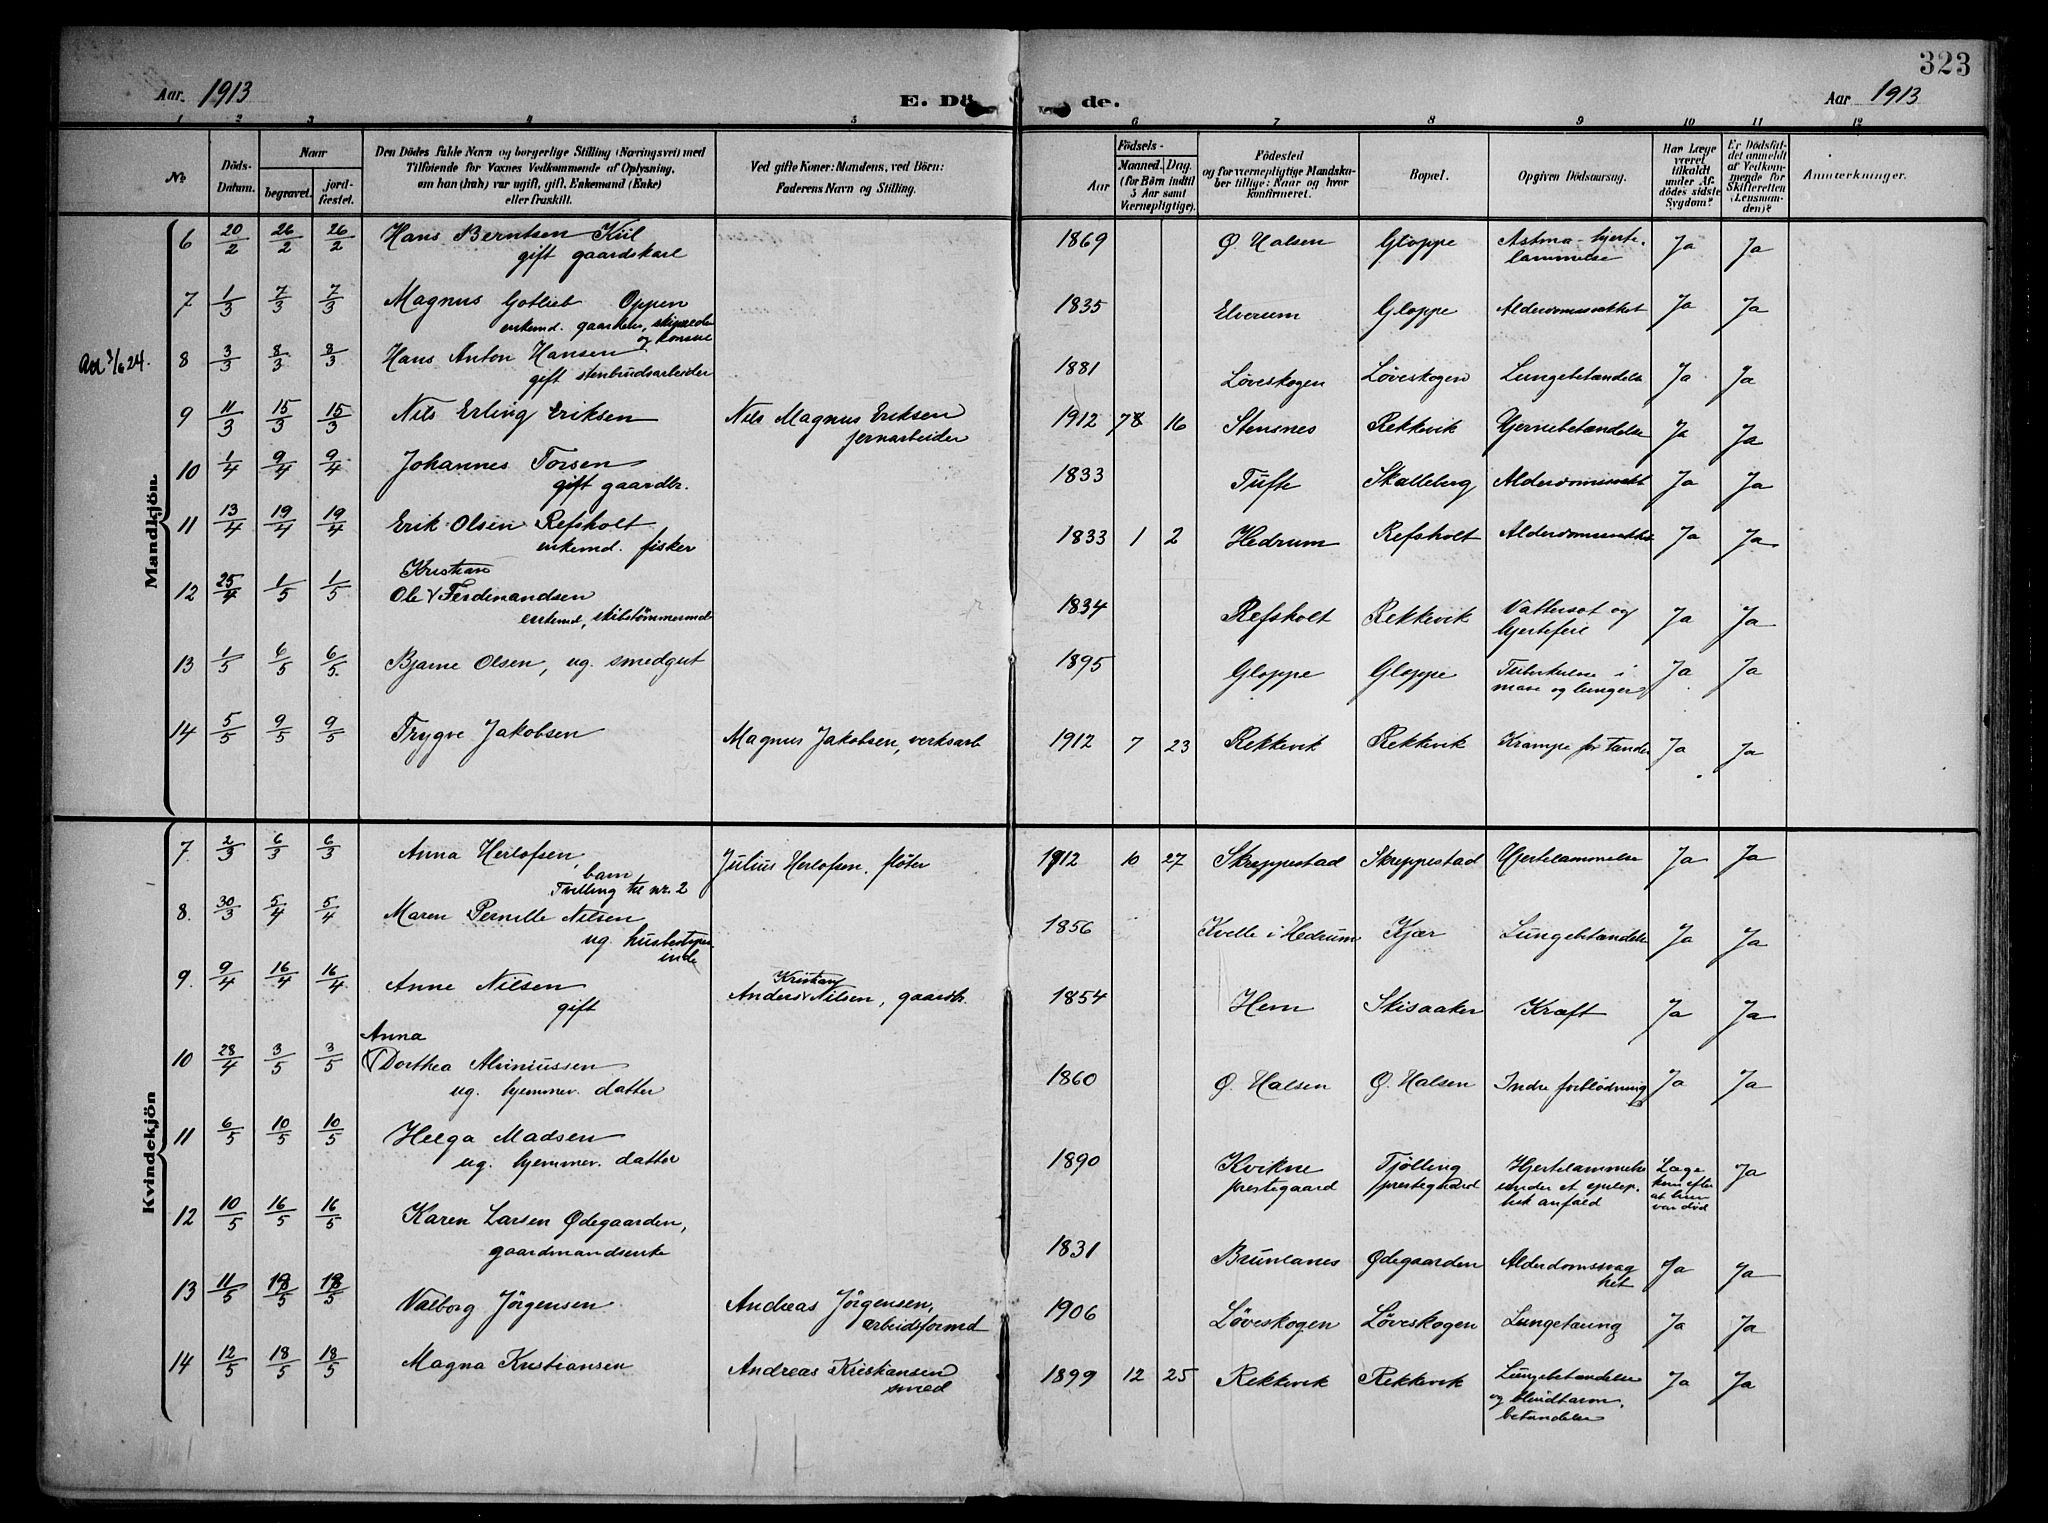 323
Aar. 1913
E. Dö de.
Aar 1913
1 2 3 4 5 6 7 8 9 10 11 12
No
Döds-Datum.
Naar
begravet.
jord-fæstet.
Den Dödes fulde Navn og borgerlige Stilling (Næringsvei) med
Tilföiende for Voxnes Vedkommende af Oplysning,
om han (hun) var ugift, gift, Enkemand (Enke)
eller fraskilt.
Ved gifte Koner: Mandens, ved Börn:
Faderens Navn og Stilling.
Födsels-
Aar
Maaned. Dag.
(for Börn indtil
5 Aar samt
Værnepligtige).
Födested
og for værnepligtige Mandska-
ber tillige: Naar og hvor
konfirmeret.
Bopæl.
Opgiven Dödsaarsag.
Har Læge
været
tilkaldt
under Af-
dödes sidste
Sygdom?
Er Dödsfal-
det anmeldt
af Vedkom-
mende for
Skifteretten
(Lensman-
den)?
Anmærkninger.
Mandkjön.
6 20/2 26/2 26/2 Hans Berntsen Kiil 1869 Ø Halsen Gloppe Astma-hjerte- Ja Ja
gift gaardskarl lammelse
7 1/3 7/3 7/3 Magnus Gotlieb Oppen 1835 Elverum Gloppe Alderdomssvakhet Ja Ja
enkemd. gaardeier, skipsreder
og konsul
8 3/3 8/3 8/3 Hans Anton Hansen 1881 Løveskogen Løveskogen Lungebetændelse Ja Ja
gift stenbrudsarbeider
9 11/3 15/3 15/3 Nils Erling Eriksen Nils Magnus Eriksen 1912 16 Stensnes Rekkevik Hjernebetændelse Ja Ja
jernarbeider
10 1/4 9/4 9/4 Johannes Torsen 1833 Tufte Skalleberg Alderdomssvakt Ja Ja
gift gaardbr.
11 13/4 19/4 19/4 Erik Olsen Refsholt 1833 1 2 Hedrum Refsholt Ja Ja
enkemd. fisker
Kristian
12 25/4 1/5 1/5 Ole V Ferdinandsen 1834 Refsholt Rekkevik Vattersot og Ja Ja
enkemd, skibstømmermd hjertefeil
13 1/5 6/5 6/5 Bjarne Olsen, ug. smedgut 1895 Gloppe Gloppe Tuberkulose i Ja Ja
mave og lunger
14 5/5 9/5 9/5 Trygve Jakobsen Magnus Jakobsen, verksarb 1912 7 23 Rekkevik Rekkevik Krampe for tænder Ja Ja
Kvindekjön
7. 2/3 6/3 6/3 Anna Herlofsen Julius Herlofsen. fløter 1912 10 27 Skreppestad Skreppestad Hjertelammelse Ja Ja
barn,
Tvilling til nr. 2
8. 30/3 5/4 5/4 Maren Pernille Nilsen 1856 Kvelle i Hedrum Kjær Lungebetændelse Ja Ja
ug. husbestyrer-
inde
Kristian
9. 9/4 16/4 16/4 Anne Nilsen Anders V Nilsen, gaardb. 1854 Hem Skisaaker Kræft Ja Ja
gift
Anna
10 28/4 3/5 3/5 V Dorthea Aliniussen 1860 Ø. Halsen Ø. Halsen Indre forblødning Ja Ja
ug. hjemmev. datter
11 6/5 10/5 10/5 Helga Madsen 1890 Kvikne Tjølling Hjertelammelse Læge Ja
ug. hjemmev. datter prestegaard prestegaard under et epilep- kom efter
tisk anfald at hun
var død
12 10/5 16/5 16/5 Karen Larsen Ødegaarden, 1831 Brunlanes Ødegaarden Alderdomssvag Ja Ja
gaardmandsenke het
13 11/5 18/5 18/5 Valborg Jörgensen Andreas Jörgensen, 1906 Løveskogen Løveskogen Lungetæring Ja Ja
arbeidsformd
14 12/5 18/5 18/5 Magna Kristiansen Andreas Kristiansen 1899 12 25 Rekkevik Rekkevik Lungebetændelse Ja Ja
smed og blindtarm-
betændelse